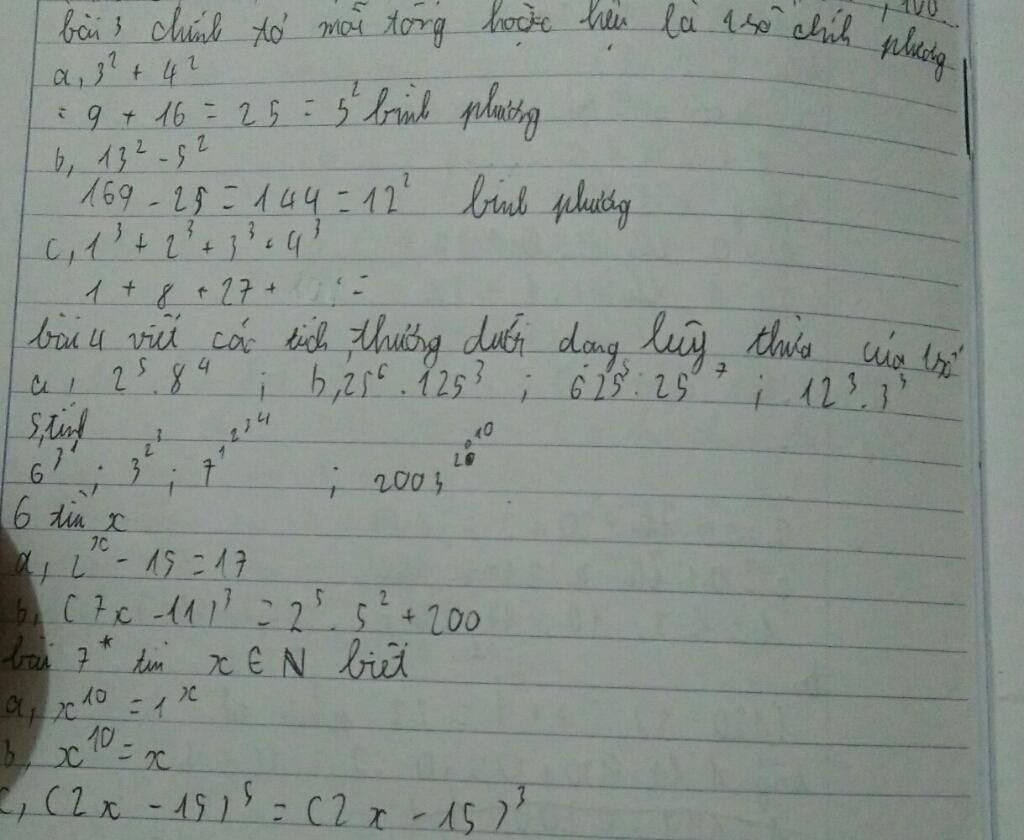 , 100
bài 3 chính tỏ mỗi tổng hoặc hiệu là 1 số chính phương
a, 3² + 4²
= 9 + 16 = 25 = 5² bình phương
b, 13² - 5²
169 - 25 = 144 = 12² bình phương
c, 1³ + 2³ + 3³ + 4³
1 + 8 + 27 + =
bài 4 viết các tích, thương dưới dạng lũy thừa của 1 số
a, 2⁵ . 8⁴ ; b, 25⁶ . 125³ ; 625⁵ : 25⁷ ; 12³ . 3³
5, tính
6^3^1 ; 3^2^3 ; 7^1^2^3^4 ; 2003
6 tìm x
a, 2ˣ - 15 = 17
b, (7x - 11)³ = 2⁵ . 5² + 200
bài 7* tìm x ∈ N biết
a, x¹⁰ = 1ˣ
b, x¹⁰ = x
c, (2x - 15)⁵ = (2x - 15)³